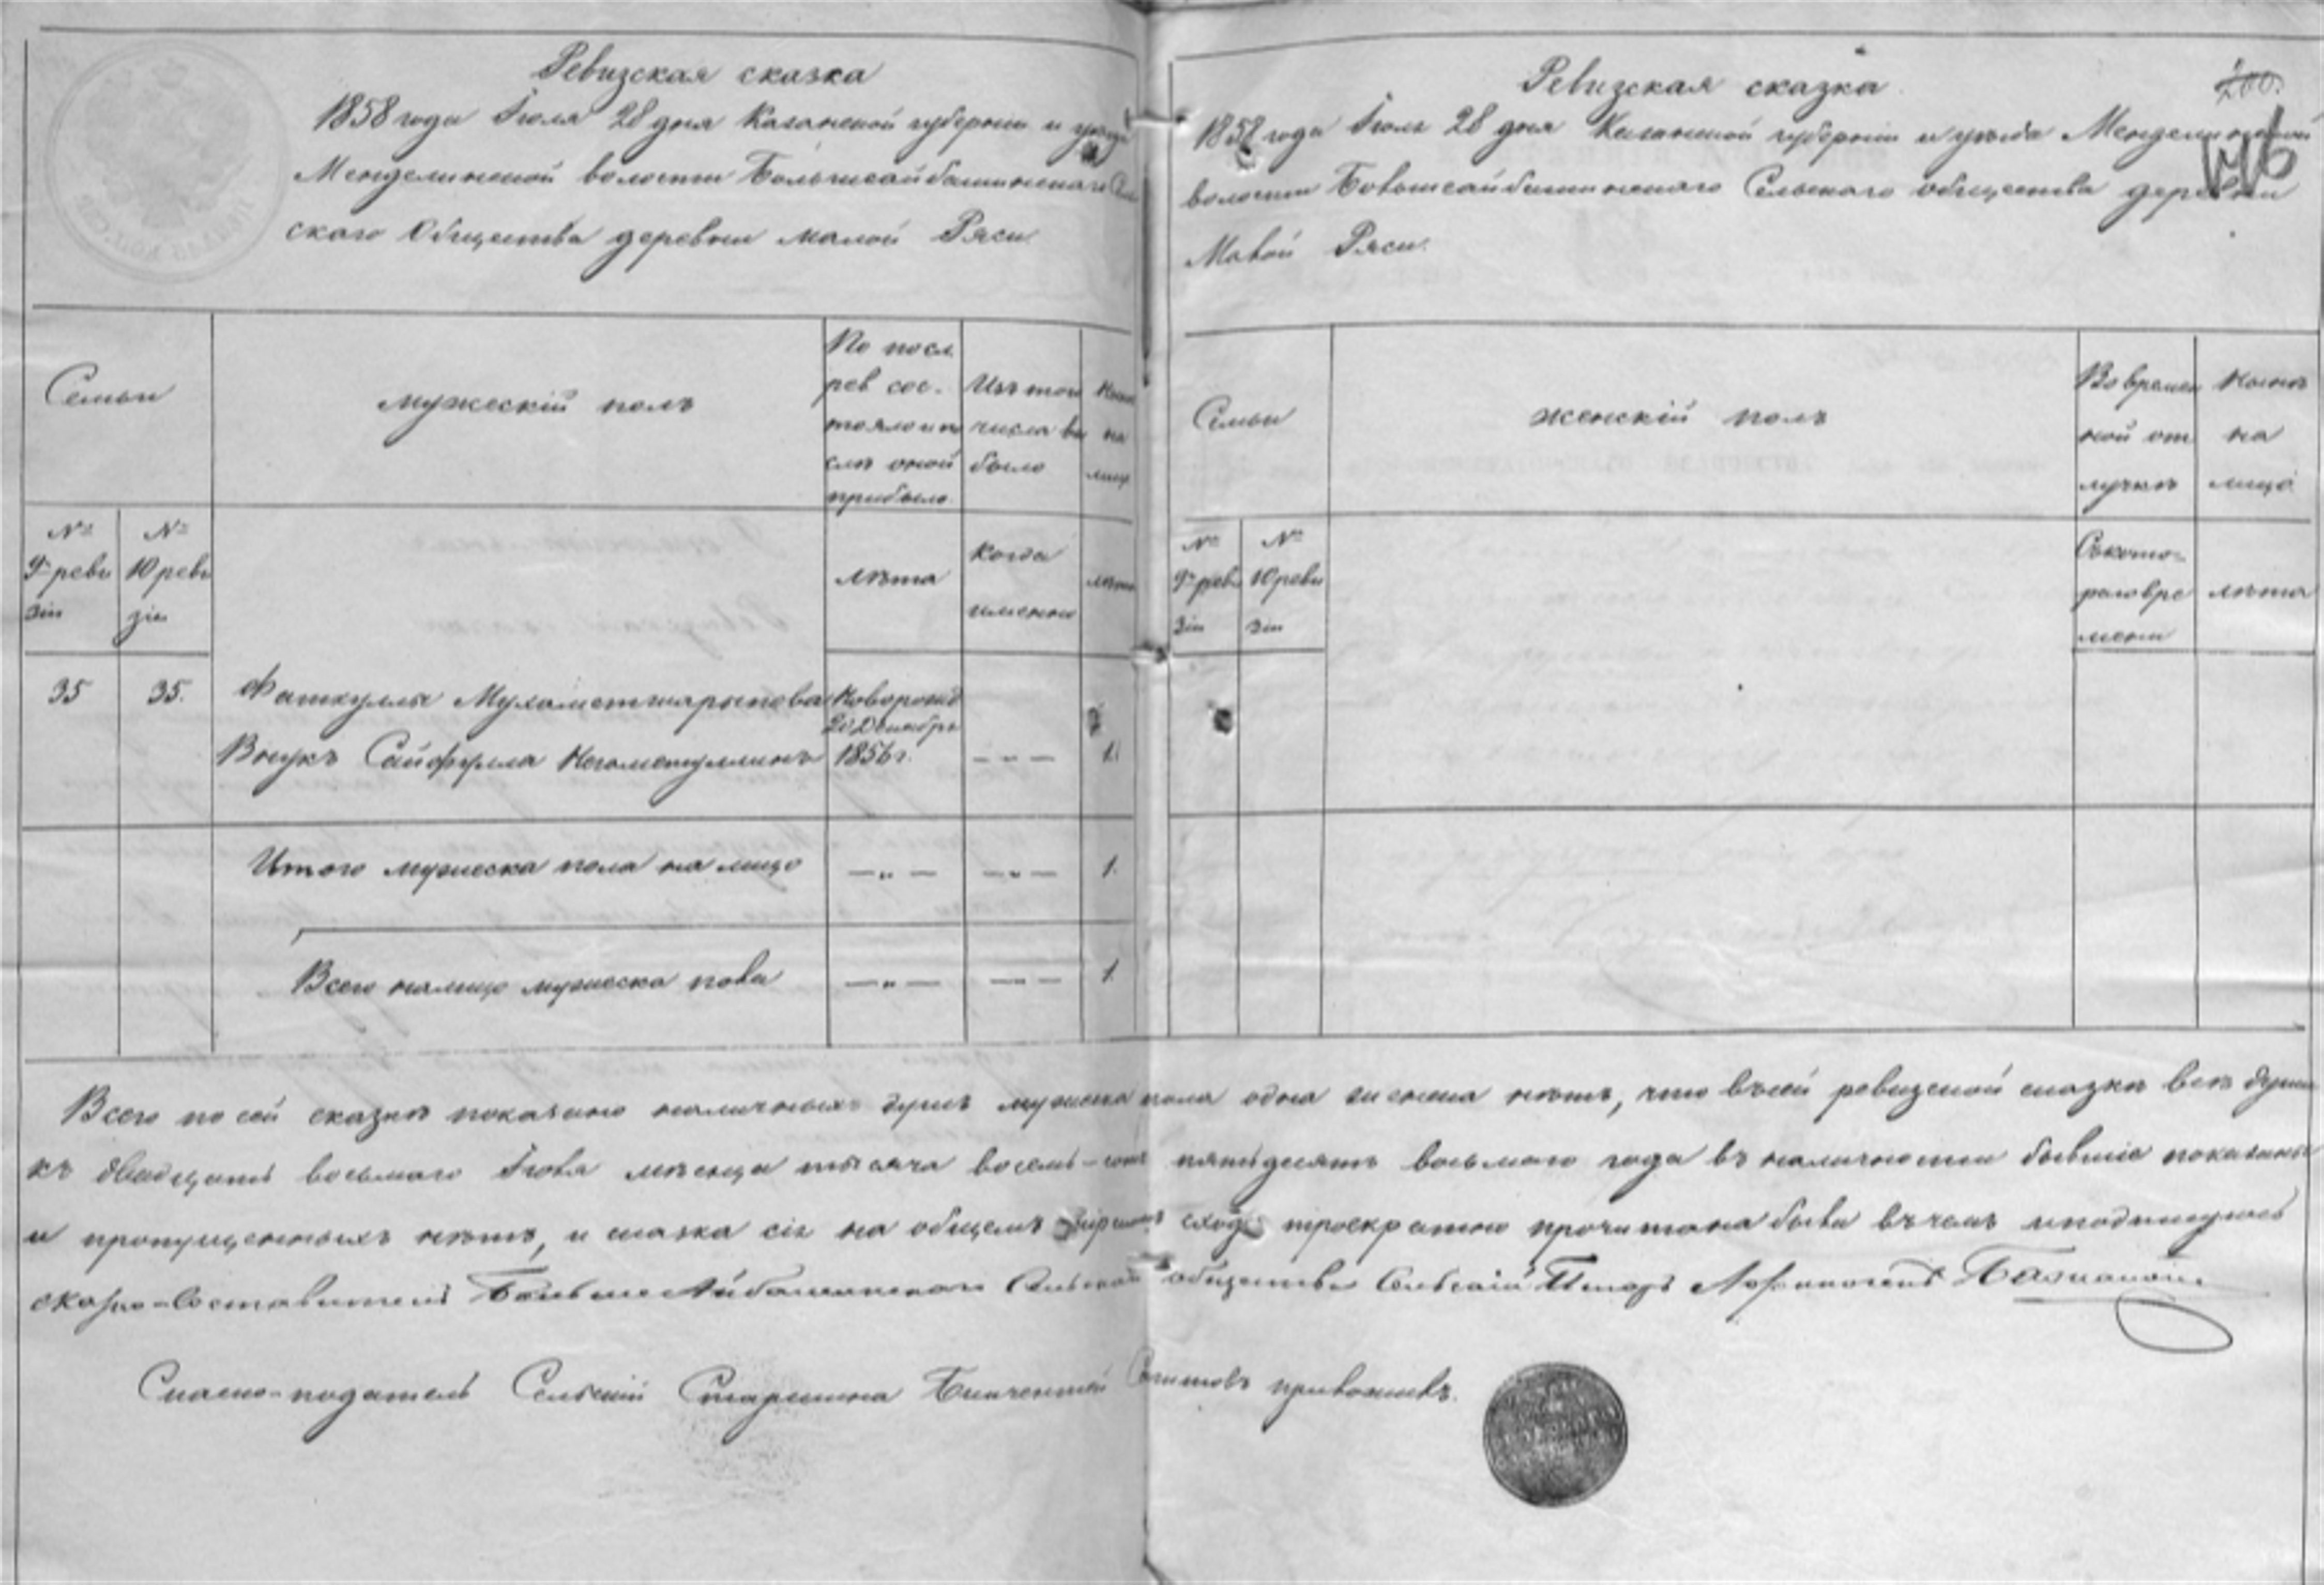 Ревизская сказка
1858 года Іюля 28 дня Казанской губерніи и уѣзда
Менделинской волости Большеайбашинскаго Сель
скаго Общества деревни Малой Ряси.
Семьи
мужескій полъ
По посл.
рев сос.
тояло и по
слѣ оной
прибыло
Изъ того
числа вы
было
Нынѣ
на
лицо
№
9й реви
зіи
№
10 реви
зіи
лѣта
Когда
именно
лѣта
35
35.
Фаткуллы Мухаметшарыпова
Новорожд
20 Декабря
1856 г.
Внукъ Сайфулла Негаметуллинъ
— " —
1.
Итого мужеска пола на лицо
— " —
— " —
1.
Всего налицо мужеска пола
— " —
— " —
1.
Ревизская сказка
1858 года Іюля 28 дня Казанской губерніи и уѣзда Менделинской
волости Большеайбашинскаго Сельскаго общества деревни
Малой Ряси.
Семьи
женскій полъ
Во времен
ной от
лучкѣ
Нынѣ
на
лицо
№
9й реви
зіи
№
10 реви
зіи
Съ кото-
раго вре
мени
лѣта
Всего по сей сказкѣ показано наличныхъ душъ мужеска пола одна женска нѣтъ, что въ сей ревизской сказкѣ все души
къ двадцать восьмаго Іюля мѣсяца тысяча восемь-сотъ пятидесятъ восьмаго года въ наличности бывшіе показаны
и пропущенныхъ нѣтъ, и сказка сія на общемъ мірскомъ сходѣ троекратно прочитана была въ чемъ и подпишуюсь
сказко-составитель Больше Айбашинскаго Сельскаго общества Сельскій Писарь
Сказко-податель Сельскій Старшина приложилъ.